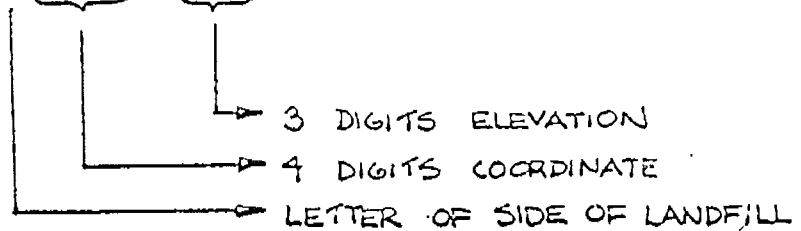 3 DIGITS ELEVATION
4 DIGITS COORDINATE
LETTER OF SIDE OF LANDFILL